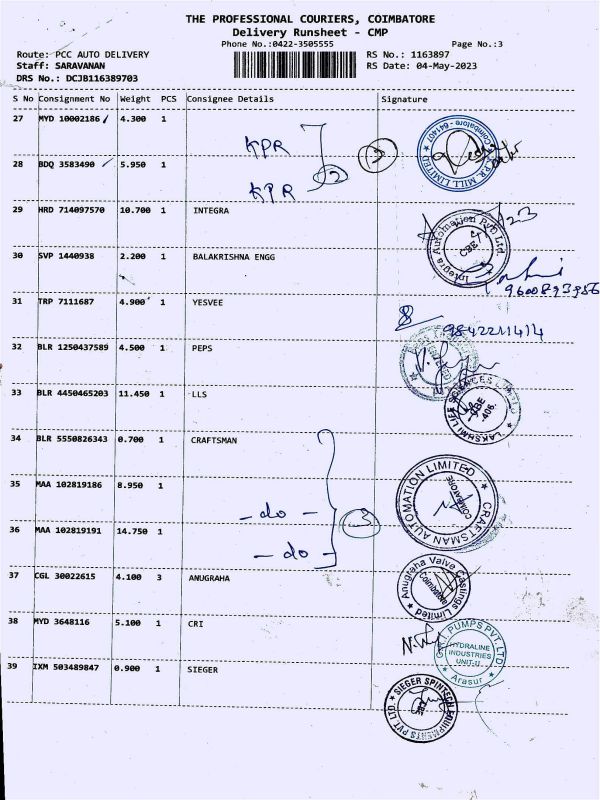 THE PROFESSIONAL COURIERS, COIMBATORE
Delivery Runsheet - CMP
Phone No.:0422-3505555
Page No.:3
Route: PCC AUTO DELIVERY
RS No.: 1163897
Staff: SARAVANAN
RS Date: 04-May-2023
DRS No.: DCJB116389703
S No Consignment No Weight PCS Consignee Details Signature
27 MYD 10002186 4.300 1
KPR
P.R. MILL LIMITED
Coimbatore - 641407
28 BDQ 3583490 5.950 1
KPR
2
29 HRD 714097570 10.700 1 INTEGRA
Integra Automation Pvt Ltd.
CBE
30 SVP 1440938 2.200 1 BALAKRISHNA ENGG
31 TRP 7111687 4.900 1 YESVEE
9842211414
32 BLR 1250437589 4.500 1 PEPS
33 BLR 4450465203 11.450 1 LLS
LAKSHMI LIFE SCIENCES LIMITED
34 BLR 5550826343 0.700 1 CRAFTSMAN
35 MAA 102819186 8.950 1
- do -
3
CRAFTSMAN AUTOMATION LIMITED
COIMBATORE
36 MAA 102819191 14.750 1
- do -
37 CGL 30022615 4.100 3 ANUGRAHA
Anugraha Valve Castings Limited
Coimbatore
38 MYD 3648116 5.100 1 CRI
PUMPS PVT. LTD
HYDRALINE
INDUSTRIES
UNIT-II
Arasur
39 IXM 503489847 0.900 1 SIEGER
SIEGER SPINTECH EQUIPMENTS PVT LTD.
CBE